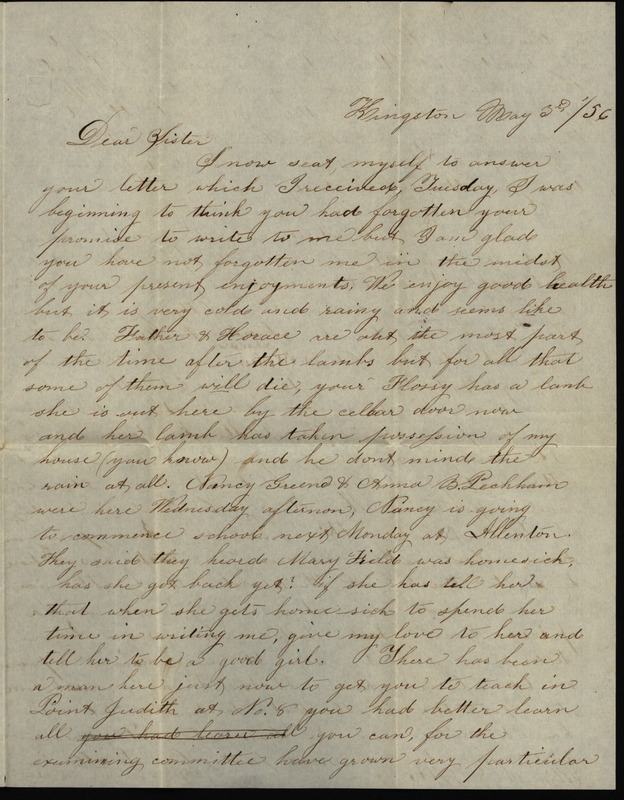 Kingston May 3d /56
Dear Sister
I now seat myself to answer
your letter which I received, Tuesday, I was
beginning to think you had forgotten your
promise to write to me but I am glad
you have not forgotten me in the midst
of your present enjoyments. We enjoy good health
but it is very cold and rainy and seems like
to be. Father & Horace are out the most part
of the time after the lambs but for all that
some of them will die, your Flossy has a lamb
she is out here by the cellar door now
and her lamb has taken possession of my
house (you know) and he dont mind the
rain at all. Nancy Greene & Anna B. Peckham
were here Wednesday afternon, Nancy is going
to commence school next Monday at Allenton.
They said they heard Mary Field was homesick,
has she got back yet? if she has tell her
that when she gets home sick to spend her
time in writing me, give my love to her and
tell her to be a good girl. There has been
a man here just now to get you to teach in
Point Judith at No. 8 you had better learn
all you had learn all you can, for the
examining committee have grown very particular